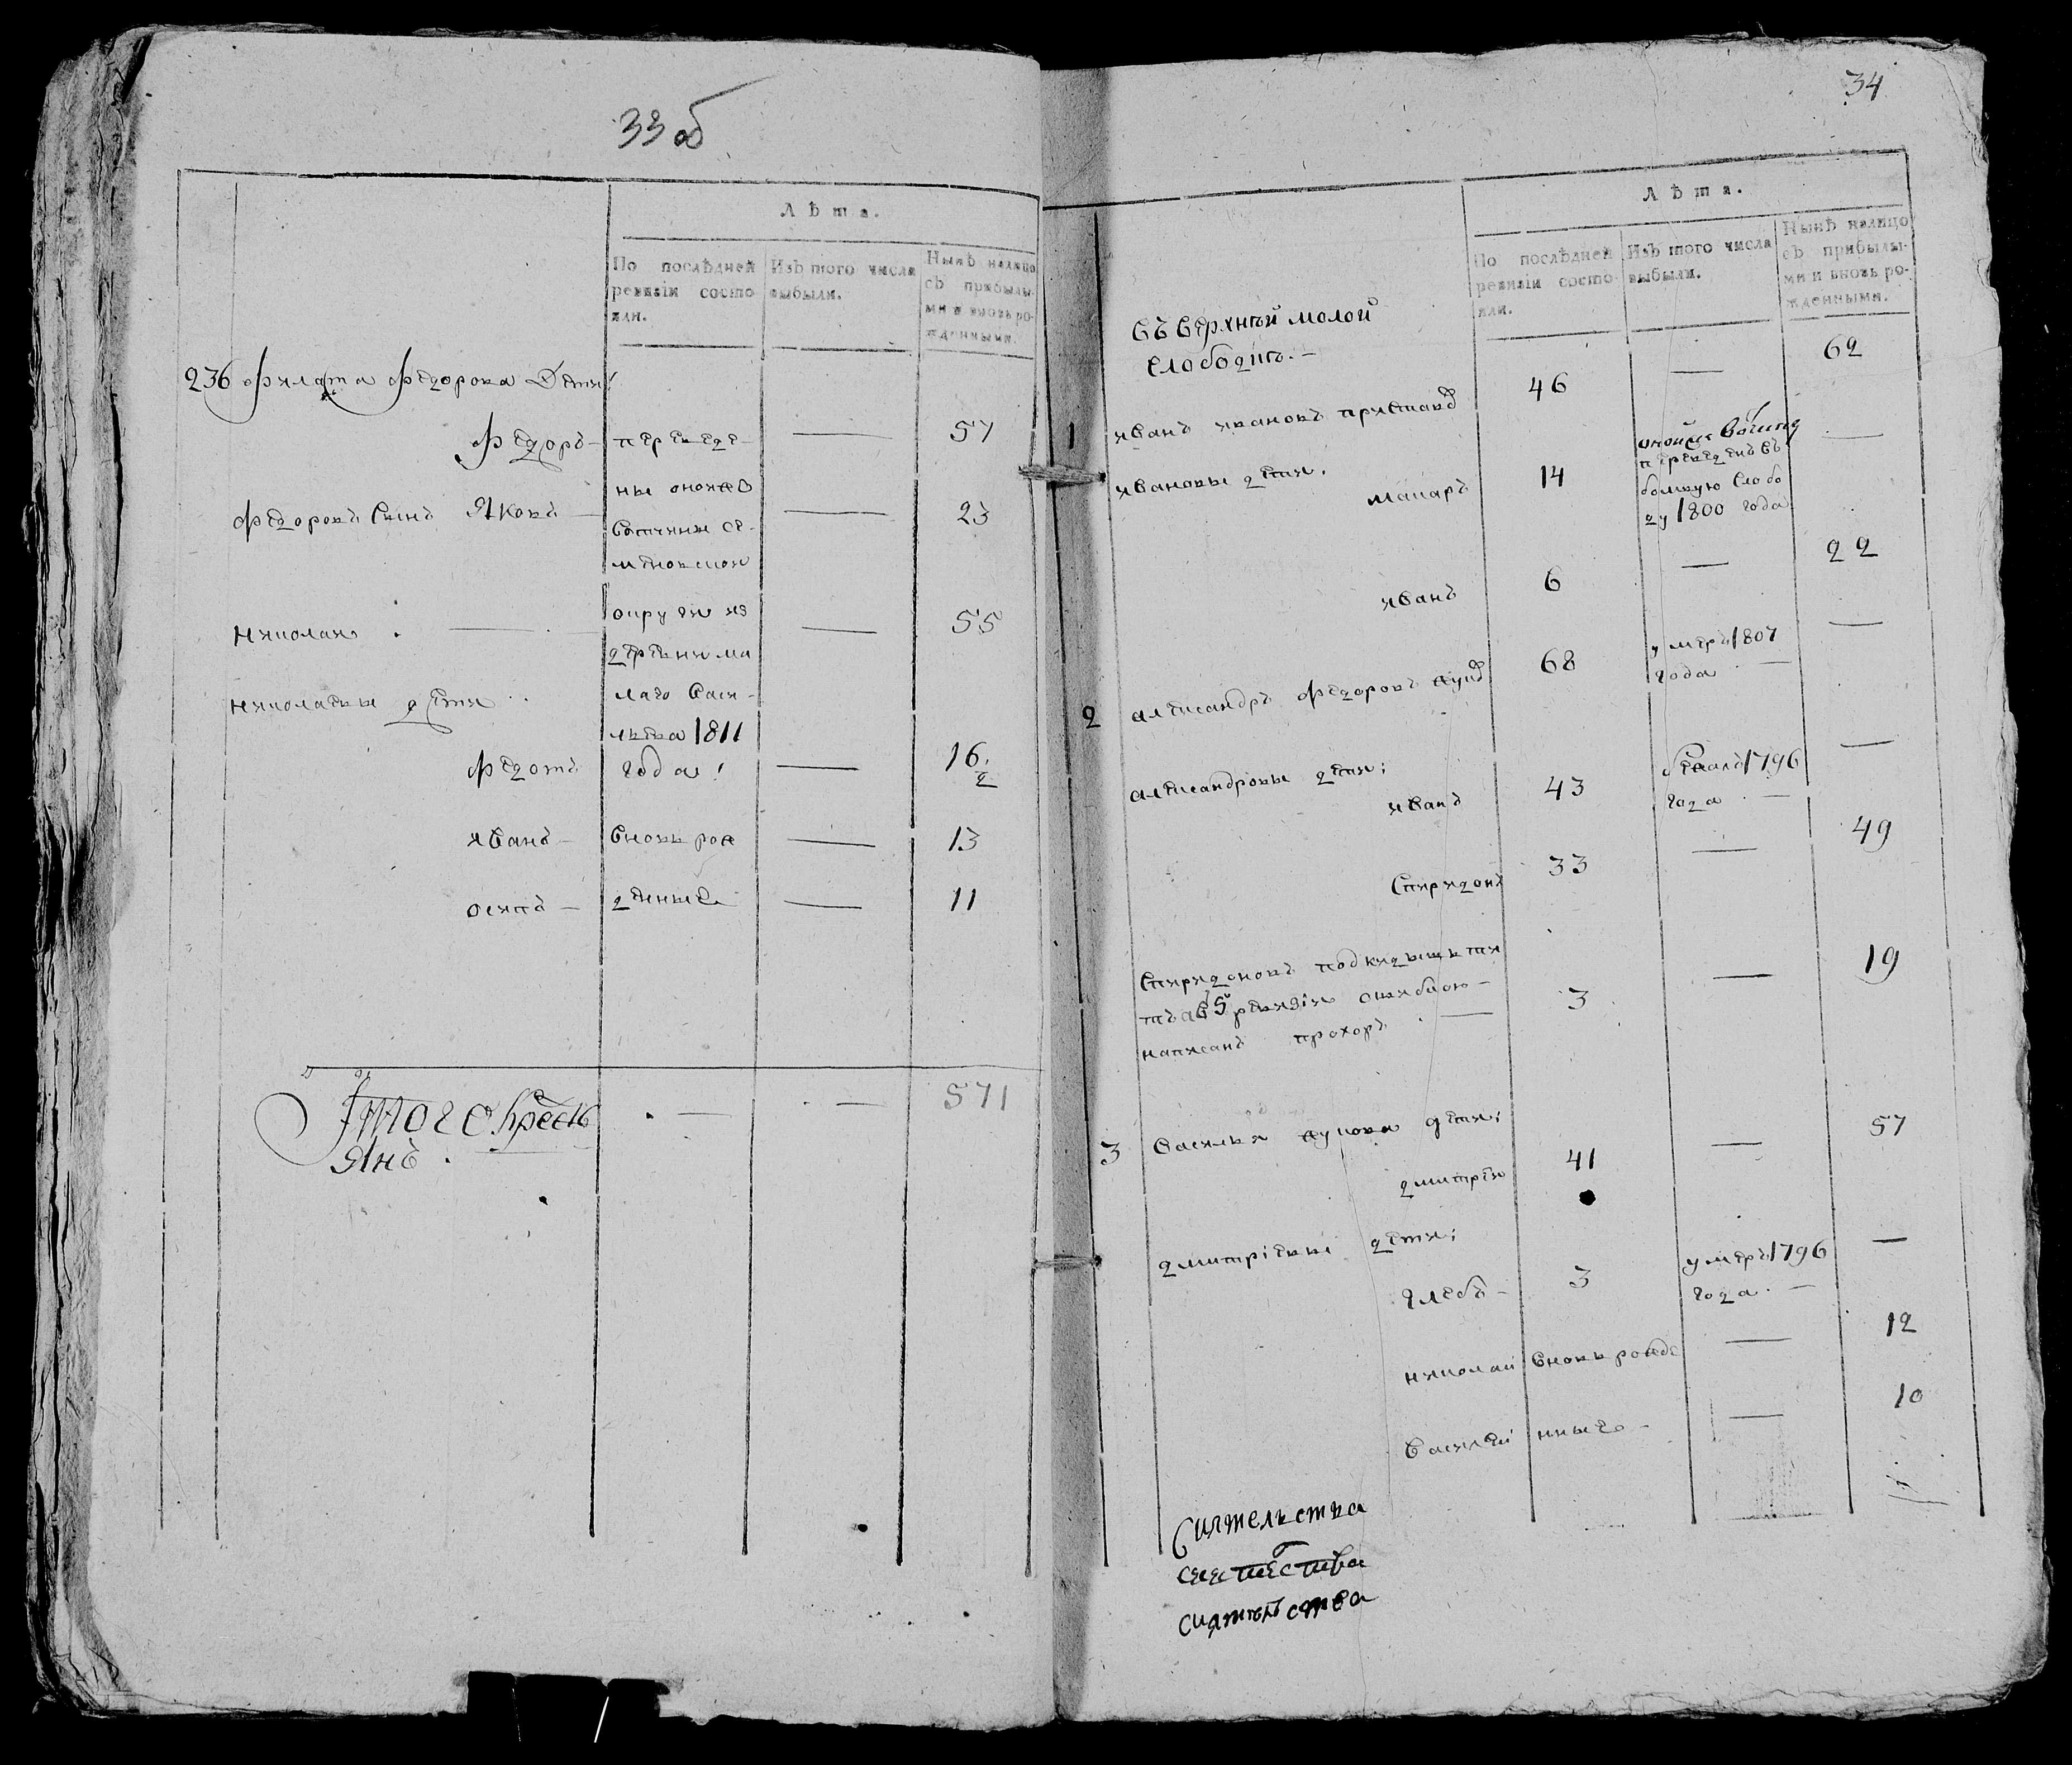 33 об
Лѣта.
По послѣдней ревизіи состояли.
Изъ того числа выбыли.
Нынѣ налицо съ прибылыми и вновь рожденными.
236 Филата Федорова Дети:
Федоръ — переведе- — 57
ны оной же
Федоровъ Сынъ Яковъ — вотчины се- — 23
меновской
Николай — округи из — 55
деревни ма
Николаевы дети лаго Васи-
льева 1811
Федотъ года: — 16 1/2
Иванъ — вновь рож — 13
осипъ — денные — 11
Итого Кресть — — 571
янъ
34
Лѣта.
По послѣдней ревизіи состояли.
Изъ того числа выбыли.
Нынѣ налицо съ прибылыми и вновь рожденными.
Въ Верхней малой
Слободке. —
1 иванъ ивановъ 46 — 62
ивановы дети:
макаръ 14 оной же вотчины —
переведенъ въ
большую слобо
ду 1800 года
иванъ 6 — 22
2 александръ федоровъ 68 умеръ 1807 —
года —
александровы дети:
иванъ 43 бежалъ 1796 —
года —
Спиридонъ 33 — 49
Спиридоновъ
ревизіи
написанъ прохоръ — 3 — 19
3 Василья дети:
дмитрей 41 — 57
дмитріевы дети:
глебъ — 3 умеръ 1796 —
года. —
николай вновь рожде — 12
василей нные — 10
Сиятельства
сиятельства
сиятельства